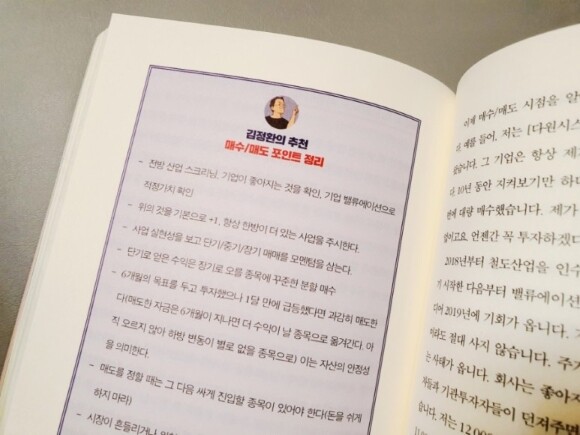 김정환의 추천
매수/매도 포인트 정리
- 전방 산업 스크리닝, 기업이 좋아지는 것을 확인, 기업 밸류에이션으로
적정가치 확인
- 위의 것을 기본으로 +1, 항상 한방이 더 있는 사업을 주시한다.
- 사업 실현성을 보고 단기/중기/장기 매매를 모멘텀을 삼는다.
- 단기로 얻은 수익은 장기로 오를 종목에 꾸준한 분할 매수
- 6개월의 목표를 두고 투자했으나 1달 만에 급등했다면 과감히 매도한
다(매도한 자금은 6개월이 지나면 더 수익이 날 종목으로 옮겨간다. 아
직 오르지 않아 하방 변동이 별로 없을 종목으로) 이는 자산의 안정성
을 의미한다.
- 매도를 정할 때는 그 다음 싸게 진입할 종목이 있어야 한다(돈을 쉬게
하지 마라)
- 시장이 흔들리거나
이제 매수/매도 시점을 알
다. 예를 들어, 저는 [다원시스
습니다. 그 기업은 항상 제
다. 10년 동안 지켜보기만 하다
만에 대량 매수했습니다. 제가
언젠간 꼭 투자하겠다
2018년부터 철도산업을 인수
기 시작한 다음부터 밸류에이션
2019년에 기회가 옵니다.
절대 사지 않습니다. 주가
는 사태가 옵니다. 회사는 좋아지
기관투자자들이 던져주면
습니다. 저는 12,00